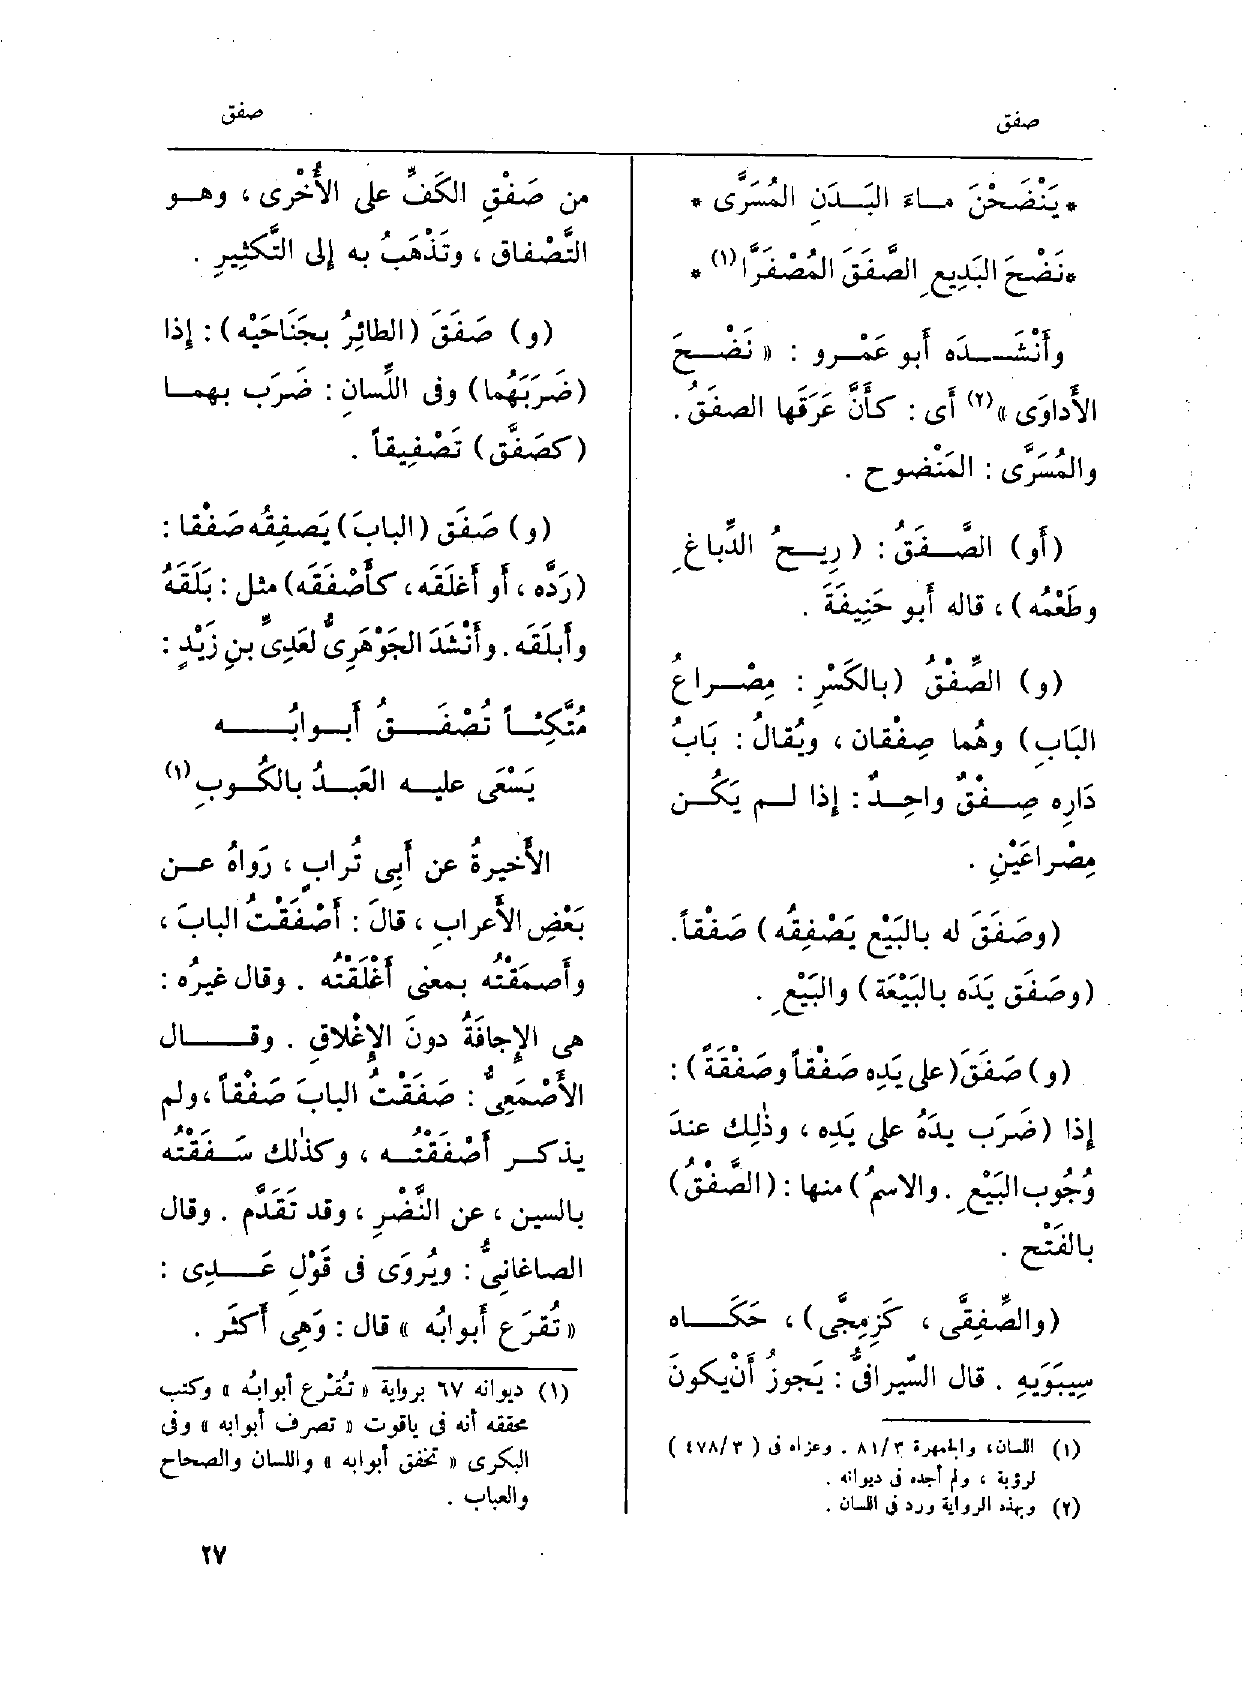 صفق
صفق
* يَنْضَحْنَ مـاءَ البَـدَنِ المُسَرَّى *
* نَضْحَ البَدِيعِ الصَّفَقَ المُصْفَرَّا (١) *
وأَنْشَـده أبو عَمْـرو : « نَضْـحَ
الأَداوَى » (٢) أى : كأَنَّ عَرَقَها الصفَقُ .
والمُسَرَّى : المَنْضوح .
(أو) الصَّـفَقُ : ( رِيـحُ الدِّباغِ
وطَعْمُه) ، قاله أبو حَنِيفَةَ .
(و) الصِّفْقُ (بالكَسْرِ : مِصْـراعُ
البَابِ) وهُما صِفْقان ، ويُقالُ : بَابُ
دَارِه صِـفْقٌ واحِـدٌ : إذا لـم يَكُـن
مِصْراعَيْنِ .
(وصَفَقَ له بالبَيْعِ يَصْفِقُه) صَفْقاً .
(وصَفَق يَدَه بالبَيْعَة) والبَيْعِ .
(و) صَفَقَ (على يَدِه صَفْقاً وصَفْقَةً) :
إذا (ضَرَب يدَهُ على يَدِه ، وذٰلِك عندَ
وُجُوب البَيْعِ . والاسمُ) منها : (الصَّفْقُ)
بالفَتْح .
(والصِّفِقَّى ، كَزِمِجَّى) ، حَكَـاه
سِيبَوَيهِ . قال السِّيرافىُّ : يَجوزُ أَنْ يكونَ
(١) اللسان، والجمهرة ٨١/٣ . وعزاه فى ( ٤٧٨/٣ )
لرؤبة ، ولم أجده فى ديوانه .
(٢) وبهذه الرواية ورد فى اللسان .
من صَفْقِ الكَفِّ على الأُخْرى ، وهـو
التَّصْفاق ، وتَذْهَبُ به إلى التَّكْثِيرِ .
(و) صَفَقَ (الطائِرُ بجَنَاحَيْه) : إذا
(ضَرَبَهُما) وفى اللِّسانِ : ضَرَب بهمـا
(كصَفَّق) تَصْفِيقاً .
(و) صَفَق (البابَ) يَصفِقُه صَفْقا :
(رَدَّه ، أو أَغلَقَه ، كأَصْفَقَه) مثل : بَلَقَهُ
وأَبلَقَه . وأَنْشَدَ الجَوْهَرِىُّ لعَدِىِّ بنِ زَيْدٍ :
مُتَّكِئـاً تُصْفَـقُ أَبـوابُـه
يَسْعَى عليـه العَبـدُ بالكُـوبِ (١)
الأَخيرةُ عن أَبِى تُرابٍ ، رَواهُ عـن
بَعْضِ الأَعرابِ ، قالَ : أَصْفَقْتُ البابَ ،
وأَصمَقْتُه بمعنى أَغْلَقْتُه . وقال غيرُه :
هى الإِجافَةُ دونَ الإِغْلاقِ . وقـال
الأَصْمَعِىُّ : صَفَقْتُ البابَ صَفْقاً ، ولم
يذكـر أَصْفَقْتـه ، وكذٰلك سَـفَقْتُه
بالسين ، عن النَّضْرِ ، وقد تَقَدَّم . وقال
الصاغانِىُّ : ويُروَى فى قَوْلِ عَـدِى :
« تُقرَع أَبوابُه » قال : وَهى أَكثَر .
(١) ديوانه ٦٧ برواية « تُقْرع أبوابهُ » وكتب
محققه أنه فى ياقوت « تصرف أبوابه » وفى
البكرى « تخفق أبوابه » واللسان والصحاح
والعباب .
٢٧